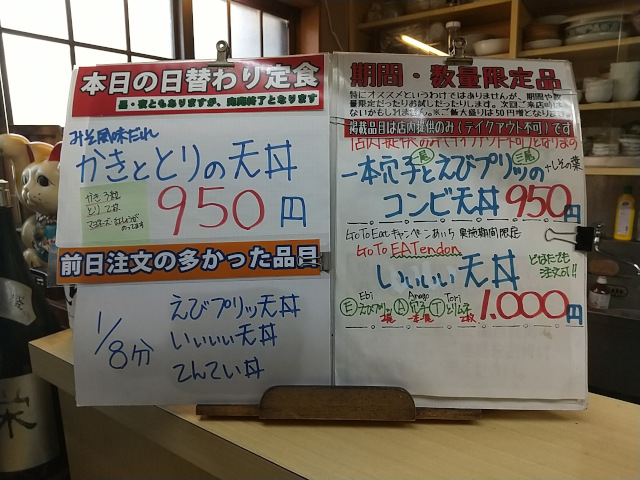 本日の日替わり定食
昼・夜ともありますが、完売終了となります
みそ風味だれ
かきととりの天丼
かき3粒
とり2枚
950円
前日注文の多かった品目
1/8分
えびプリッ天丼
いいいい天丼
てんてい丼
期間・数量限定品
特にオススメというわけではありませんが、期間や数
量限定だったりお試しだったりします。次回ご来店時は
ないかもしれません。※ご飯大盛りは50円増となります。
掲載品目は店内提供のみ(テイクアウト不可)です
一本穴子とえびプリッの
一尾 三尾
+しその葉
コンビ天丼 950円
GoToEatキャンペーンあいち 実施期間限定
GoTo EATendon
いいいい天丼
どなたでも
注文可!!
Ebi Anago Tori
Ⓔえびプリッ Ⓐ穴子 Ⓣとりムネ
1.000円